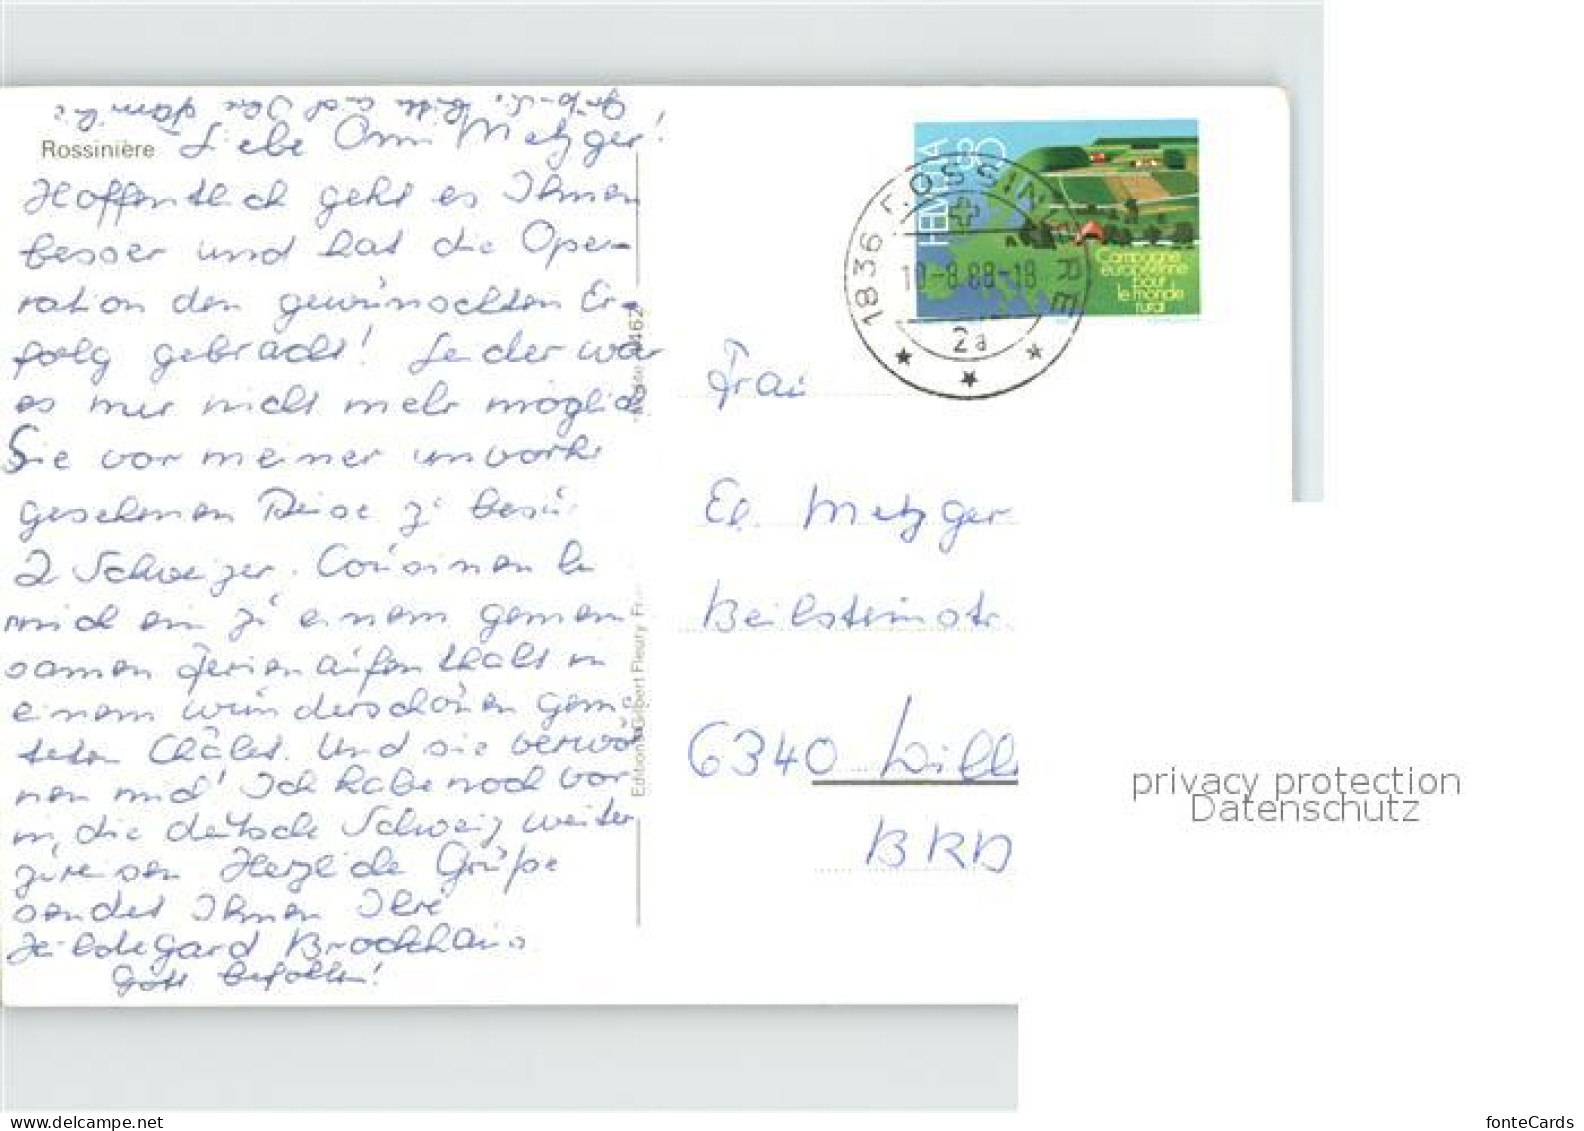 Rossinière
Liebe Omi Metzger!
Hoffentlich geht es Ihnen
besser und hat die Ope-
ration den gewünschten Er-
folg gebracht! Leider war
es mir nicht mehr möglich
Sie vor meiner unvorhe
gesehenen Reise zu besu
2 Schweizer. Cousinen lu
mich ein zu einem gemein
samen Ferienaufenthalt in
einem wunderschönen gemie
teten Châlet. Und sie verwöh
nen mich! Ich habe noch vor
in die deutsche Schweiz weiter
zureisen Herzliche Grüße
sendet Ihnen Ihre
Hildegard Brockhaus
Gott befohlen!
Editions Gilbert Fleury Fr
462
HELVETIA
80
Campagne
européenne
pour
le monde
rural
1836 ROSSINIERE
10-8.88-18
2a
Frau
El. Metzger
Beilsteinstr.
6340 Dill
BRD
privacy protection
Datenschutz
fonteCards